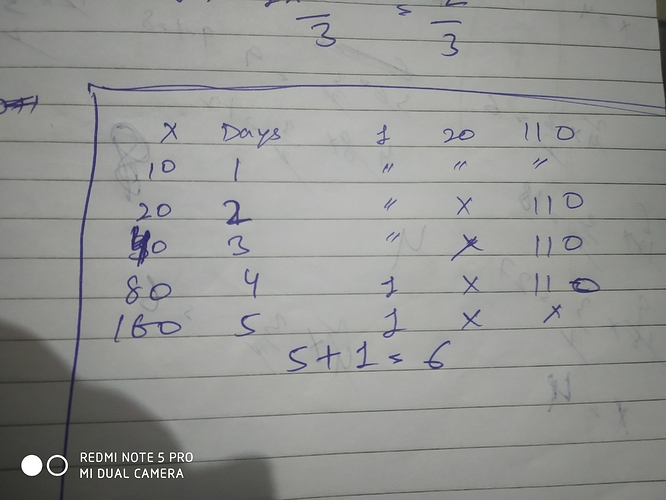 3 3
X Days 1 20 110
10 1 " " "
20 2 " X 110
40 3 " X 110
80 4 1 X 110
160 5 1 X X
5+1 = 6
REDMI NOTE 5 PRO
MI DUAL CAMERA